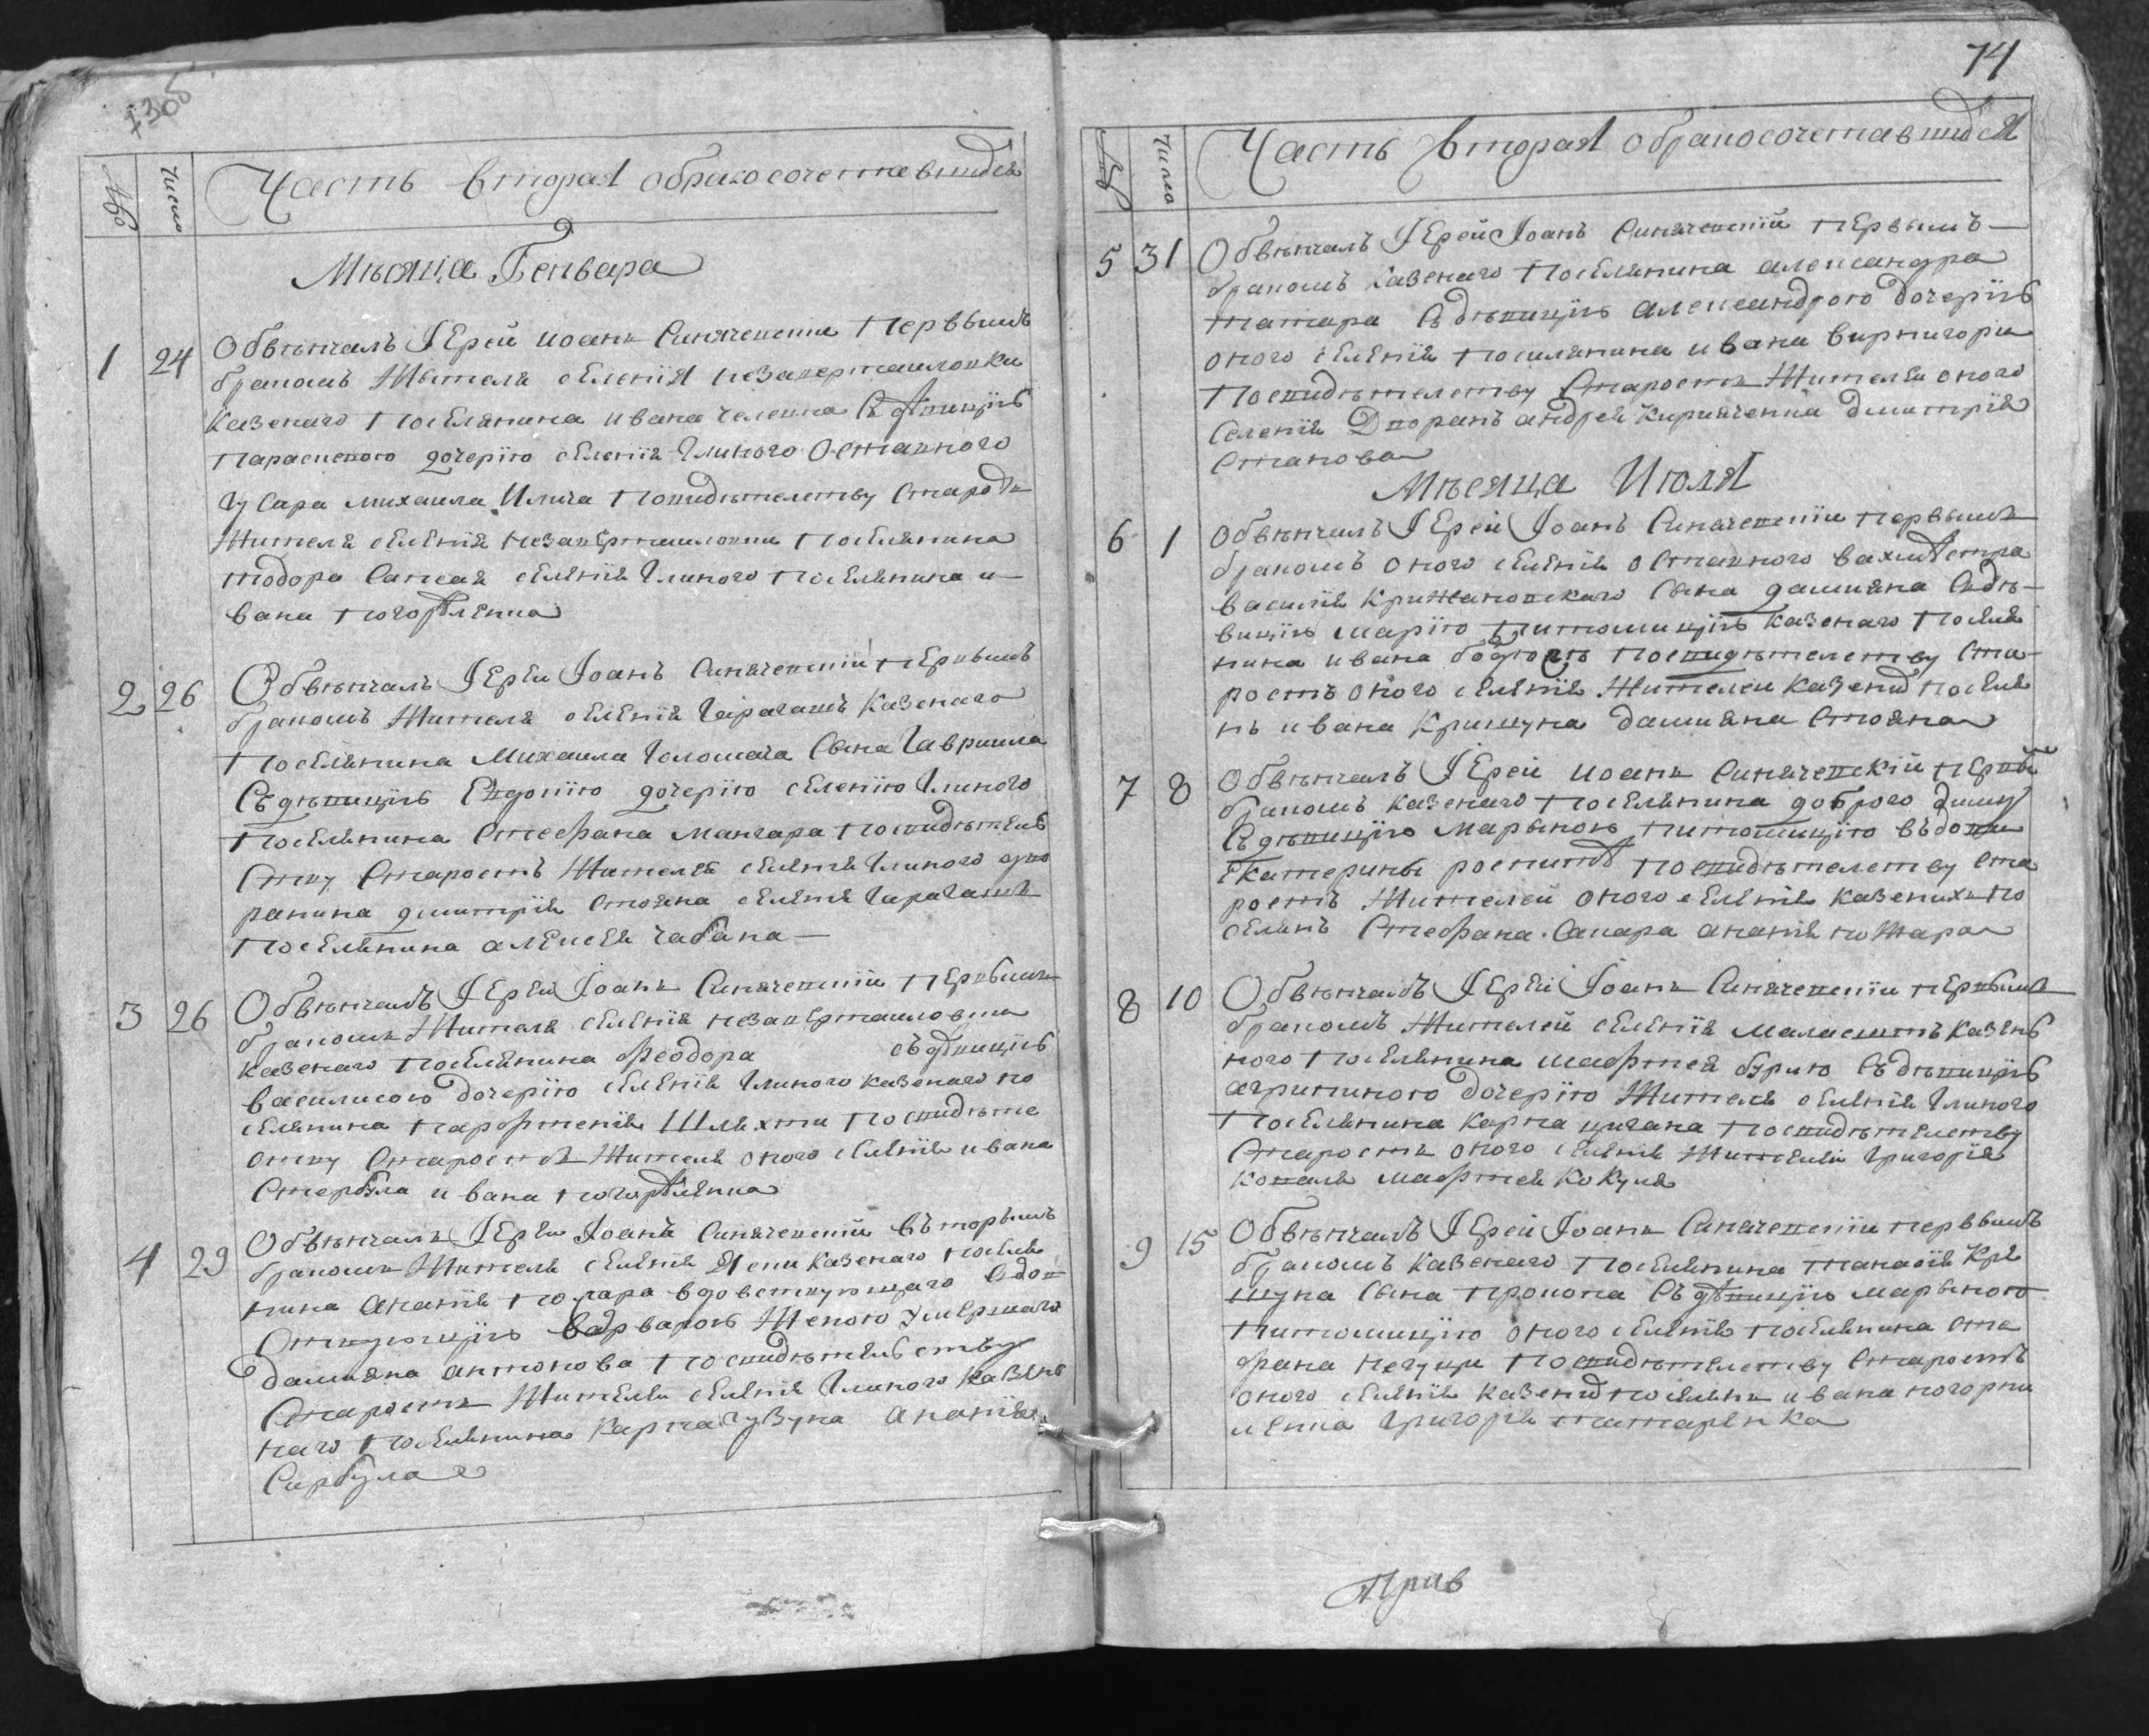 Число
Часть вторая о бракосочетавшихся
Мѣсяца Генвара
1 24 Обвѣнчалъ Іерей иоанъ Синячевскіи первымъ
бракомъ Жителя селенія незавертаиловки
казенаго Поселянина ивана челепка Съ дѣвицею
параскевою дочерію селенія Глиного Оставного
Гусара михаила Илича
Жителя селенія незавертаиловки Поселянина
тодора селенія Глиного Поселянина и
вана
2 26 Обвѣнчалъ Іереи Іоанъ Синячевскіи первымъ
бракомъ Жителя селенія казенаго
Поселянина Михаила Голомага Сына Гавриила
Съ дѣвицею Евдокію дочерію селенію Глиного
Поселянина Стефана Мангара Посвидѣтель
Ству Старостъ Жителей селенія Глиного дво
ранина димитрія стояна селенія
Поселянина алексея чабана
3 26 Обвѣнчалъ Іереи Іоанъ Синячевскіи первымъ
бракомъ Жителя селенія незавертаиловки
казенаго поселянина феодора съ дѣвицею
василисою дочерію селенія Глиного казенаго по
селянина парфтенія Шляхти Посвидѣте
ству Старостъ Жителя оного селенія ивана
ивана
4 29 Обвѣнчалъ Іереи Іоанъ Синячевскіи въторымъ
бракомъ Жителя селенія Яски казенаго поселя
нина Ананія вдовствующаго Вдов
Ствующею Варварою Женою умершаго
дамияна антонова Посвидѣтельству
Старостъ Жителеи селенія Глиного Казень
наго Поселянина Карпа Гузуна Ананія
Сирбула
74
Число
Часть вторая о бракосочетавшихся
5 31 Обвѣнчалъ Іерей Іоанъ Синячевскіи первымъ
бракомъ казенаго Поселянина александра
татара Съ дѣвицею александрою дочеріею
оного селенія поселянина ивана вирнигори
Посвидѣтелству Старостъ Жителеи оного
Селенія Дворанъ андрея Киріяченка димитрія
стаnова
Мѣсяца Июля
6 1 Обвѣнчалъ Іерей Іоанъ Синячевскіи первымъ
бракомъ оного селенія оставного вахмистра
василія Крижановскаго Сына дамияна Съдѣ
вицею марію питомицею казенаго Поселя
нина ивана Посвидѣтелству Ста
ростъ оного селенія Жителеи казених поселя
нъ ивана Кришуна дамияна Стояна
7 8 Обвѣнчалъ Іерей иоанъ Синячевскій первы
бракомъ казенаго Поселянина доброго
Съ дѣвицею марыною питомицею въдови
Екатерины Посвидѣтелству Ста
ростъ Жителей оного селенія казенихъ по
селянъ Стефана Сапара Ананія
8 10 Обвѣнчалъ Іерей Іоанъ Синячевскіи первымъ
бракомъ Жителей селенія малаештъ казень
ного Поселянина мафтея Съ дѣвицею
агрипиною дочерію Жителя селенія Глиного
Поселянина Карпа цигана Посвидѣтелству
Старостъ оного селенія Жителеи Григорія
коваля мафтея Кокуля
9 15 Обвѣнчалъ Іерей Іоанъ Синячевскіи первымъ
бракомъ казенаго Поселянина танасія Кри
шуна Сына прокопа Съ дѣвицею марыною
питомицею оного селенія поселянина сте
фана Посвидѣтелству Старостъ
оного селенія казених поселянъ ивана
Григорія татаренка
Прив